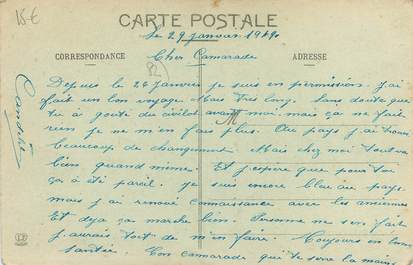 15€
CARTE POSTALE
le 29 janvier 1919
CORRESPONDANCE
Cher Camarade
ADRESSE
Depuis le 26 Janvier je suis en permission. J'ai
fait un bon voyage Mais tres long. Sans doute que
tu a gouté du civelot avant moi, mais ça ne fait
rien je ne m'en fais plus. Au pays j'ai trouvé
beaucoup de changement Mais chez moi tout va
bien quand meme. Et j'espere que pour toi
ça à été pareil. je suis encore bleu au pays
mais j'ai renoué connaissance avec les anciennes
Et deja ça marche bien. Personne ne s'en fait
j'aurais tort de m'en faire. Toujours en bonne
santée. Ton camarade qui te serre la main